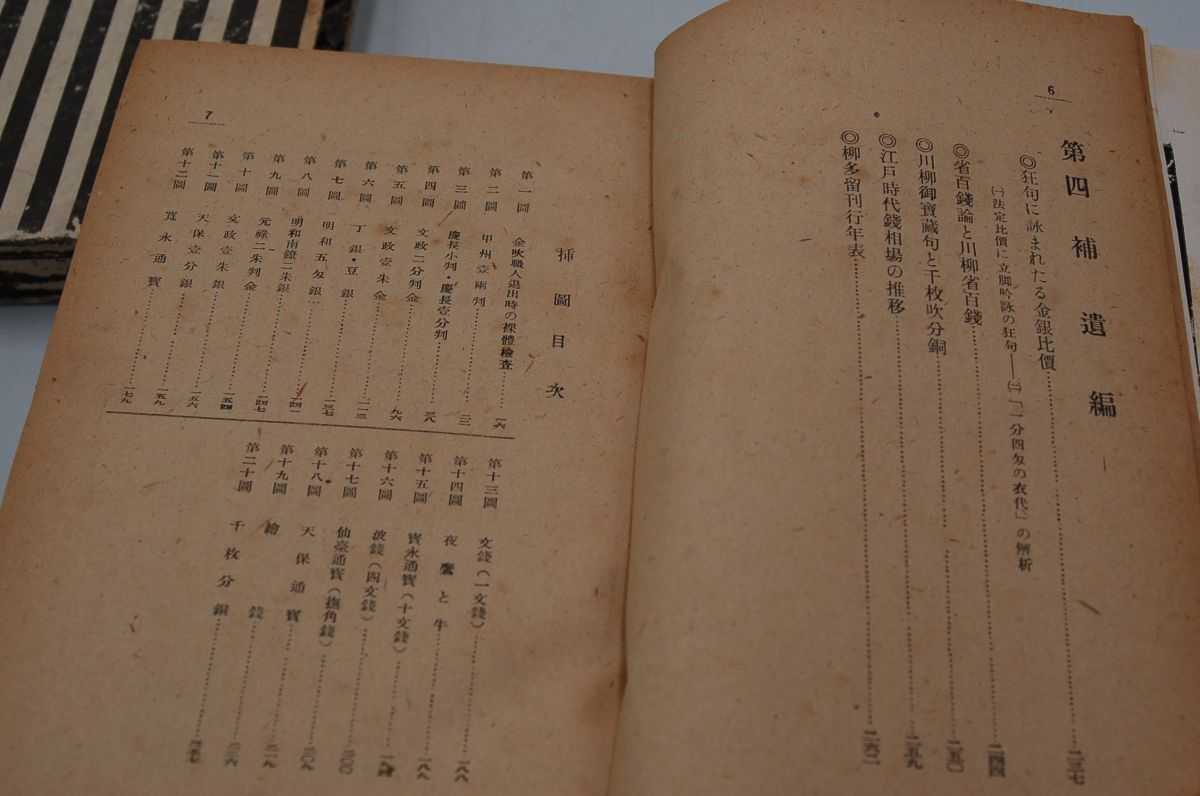 6
第四 補遺編
◎狂句に詠まれたる金銀比價……二三七
㈠法定比價に立脚吟詠の狂句——㈡「一分四匁の衣代」の解析
◎省百錢論と川柳省百錢……二四四
◎川柳御寶藏句と千枚吹分銅……二五〇
◎江戸時代錢相場の推移……二五九
◎柳多留刊行年表……二六二
7
挿圖目次
第一圖 金吹職人退出時の裸體檢査……一六
第二圖 甲州壹兩判……二三
第三圖 慶長小判・慶長壹分判……三八
第四圖 文政二分判金……九六
第五圖 文政壹朱金……一一三
第六圖 丁銀・豆銀……一三七
第七圖 明和五匁銀……一四一
第八圖 明和南鐐二朱銀……一四七
第九圖 元祿二朱判金……一五四
第十圖 文政壹朱銀……一五六
第十一圖 天保壹分銀……一五九
第十二圖 寬永通寳……一七九
第十三圖 文錢(一文錢)……一八八
第十四圖 夜鷹と牛……一八八
第十五圖 寳永通寳(十文錢)
第十六圖 波錢(四文錢)……二〇〇
第十七圖 仙臺通寳(撫角錢)……二〇九
第十八圖 天保通寳……二一九
第十九圖 繪錢……二三六
第二十圖 千枚分銅……二五七